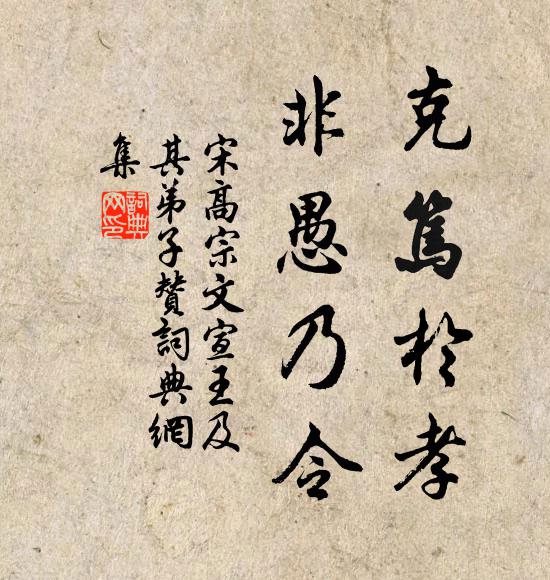 克篤於孝
非愚乃令
宋高宗文宣王及
其弟子贊詞典網
集
詞典
网印